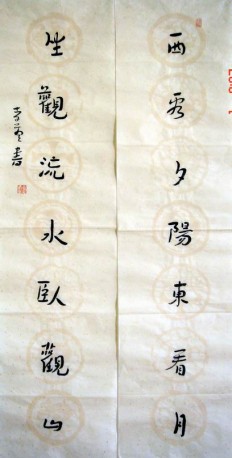 西看夕陽東看月
坐觀流水臥觀山